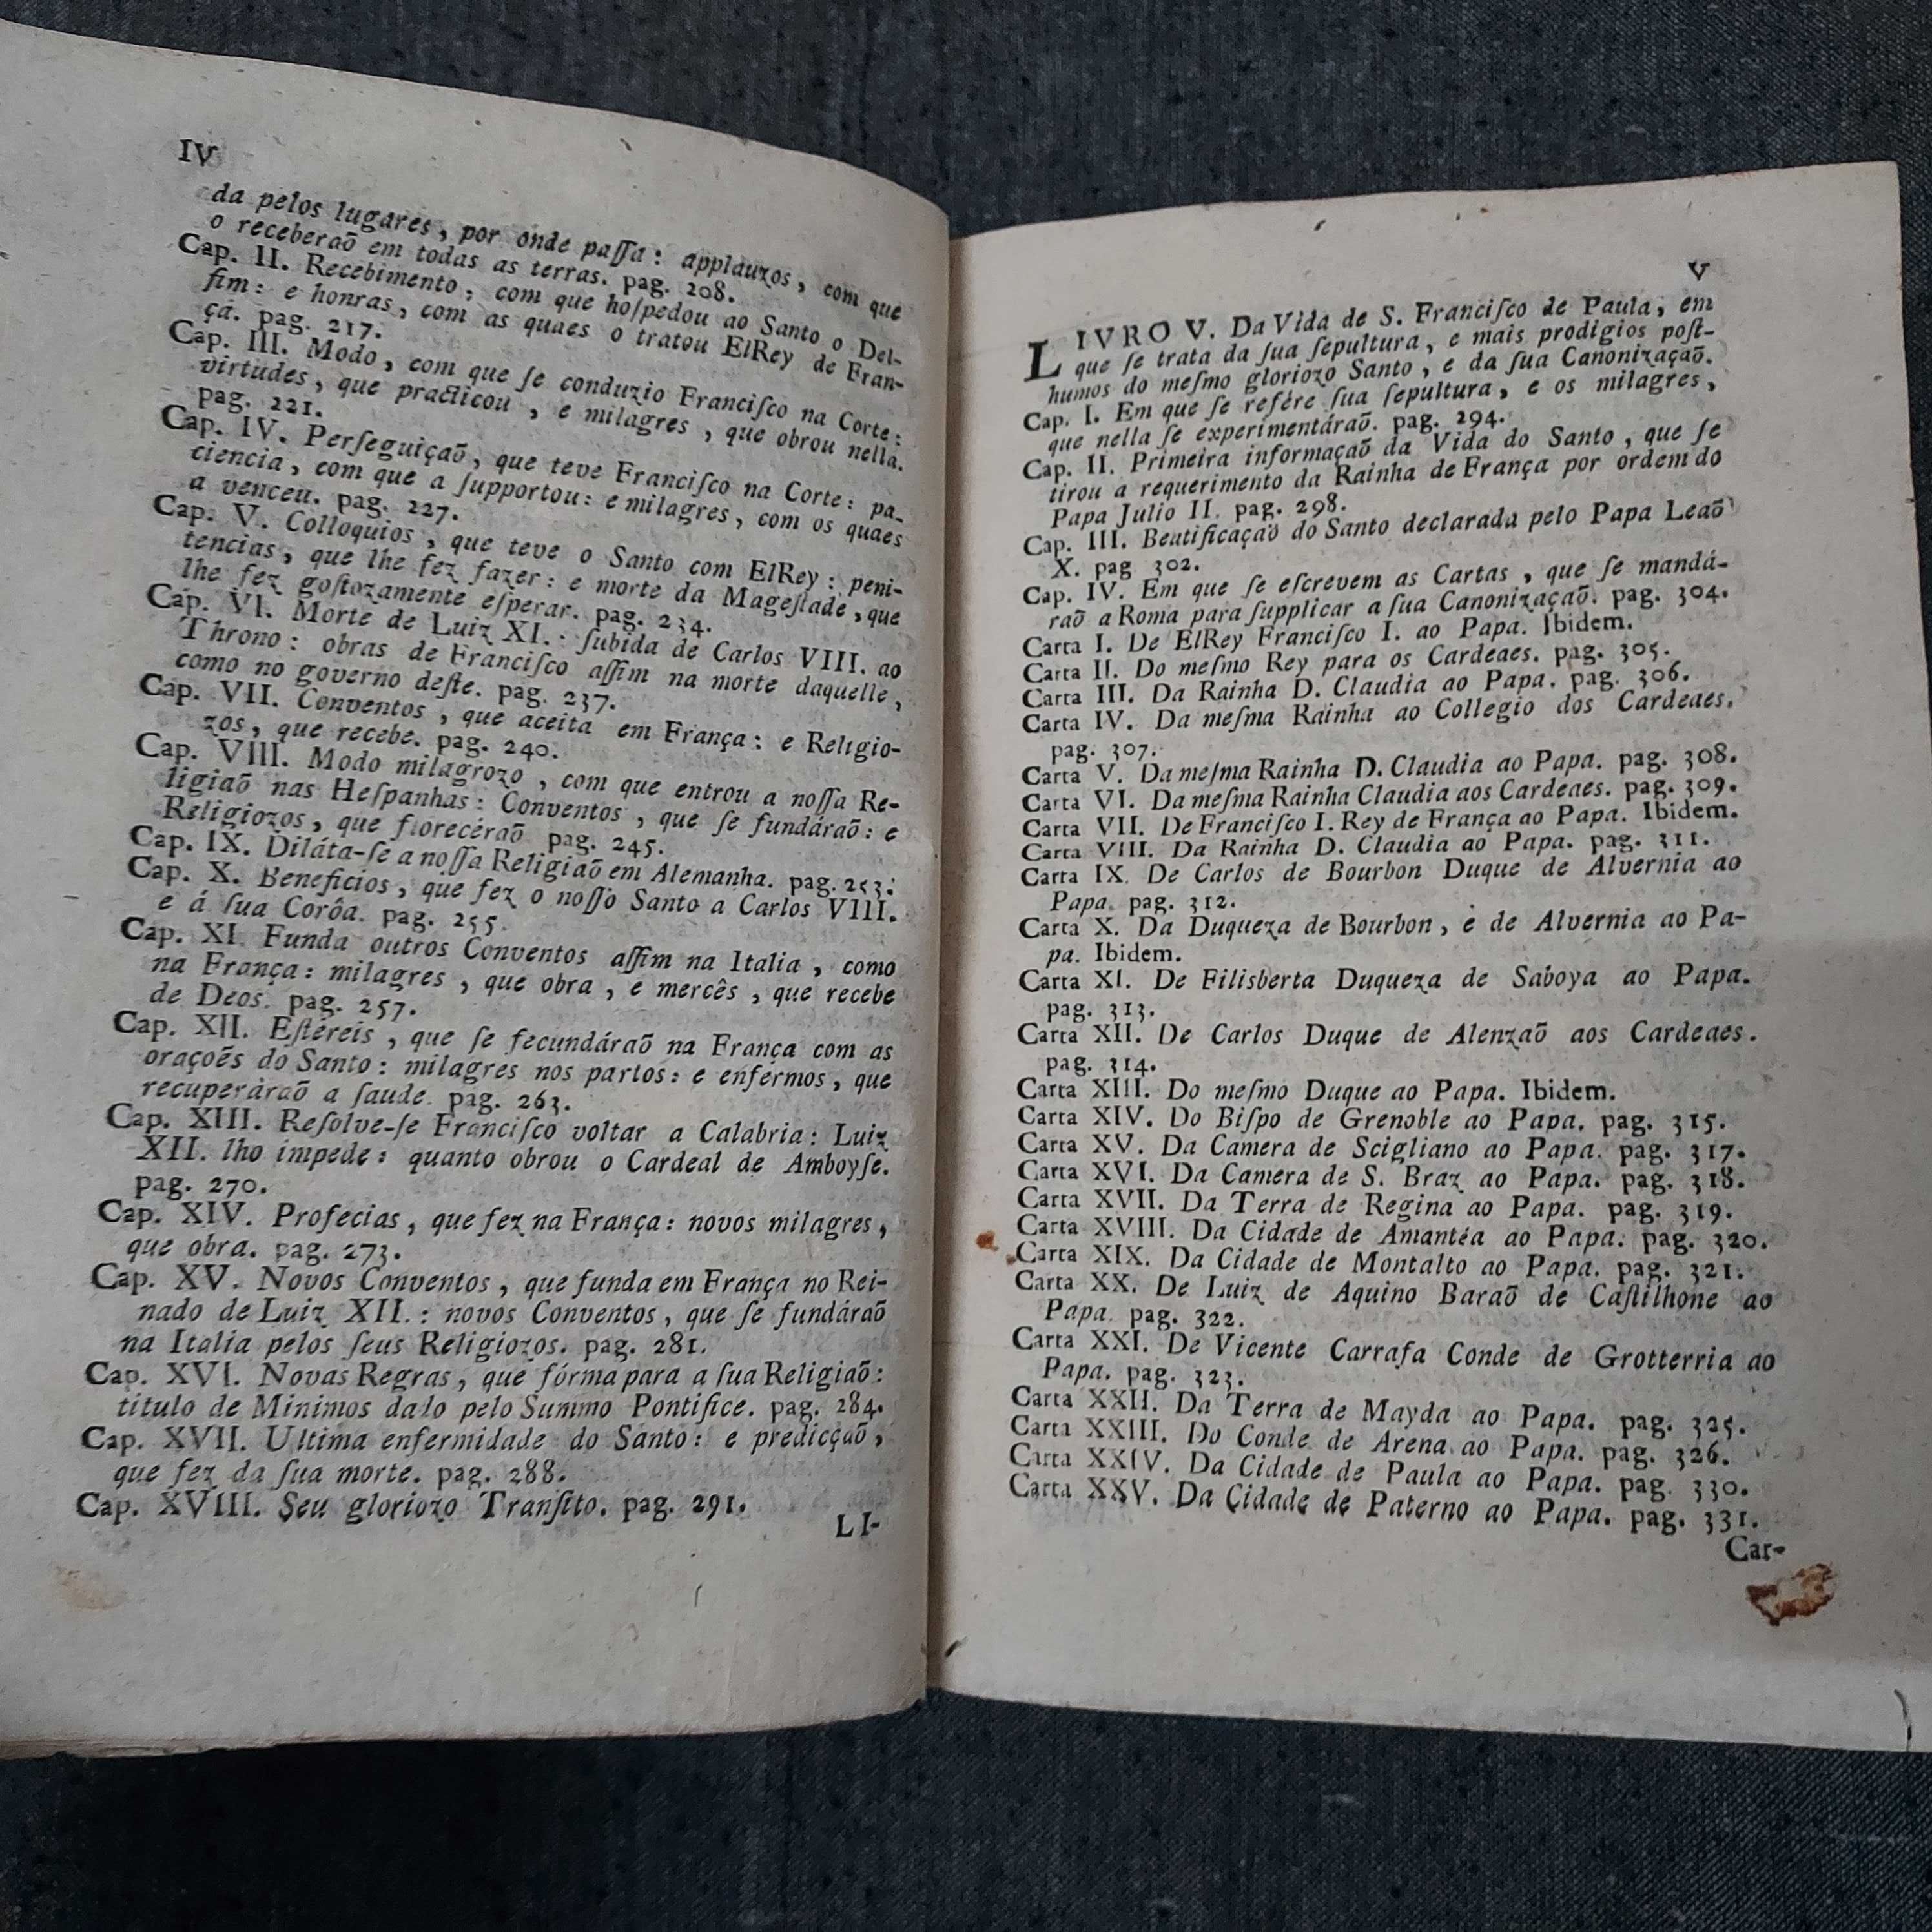 IV
da pelos lugares, por onde paſſa: applauzos, com que
o receberaõ em todas as terras. pag. 208.
Cap. II. Recebimento, com que hoſpedou ao Santo o Del-
fim: e honras, com as quaes o tratou ElRey de Fran-
ça. pag. 217.
Cap. III. Modo, com que ſe conduzio Franciſco na Corte:
virtudes, que practicou, e milagres, que obrou nella.
pag. 221.
Cap. IV. Perſeguiçaõ, que teve Franciſco na Corte: pa-
ciencia, com que a ſupportou: e milagres, com os quaes
a venceu. pag. 227.
Cap. V. Colloquios, que teve o Santo com ElRey: peni-
tencias, que lhe fez fazer: e morte da Mageſtade, que
lhe fez goſtozamente eſperar. pag. 234.
Cap. VI. Morte de Luiz XI.: ſubida de Carlos VIII. ao
Throno: obras de Franciſco aſſim na morte daquelle,
como no governo deſte. pag. 237.
Cap. VII. Conventos, que aceita em França: e Religio-
zos, que recebe. pag. 240.
Cap. VIII. Modo milagrozo, com que entrou a noſſa Re-
ligiaõ nas Heſpanhas: Conventos, que ſe fundáraõ: e
Religiozos, que florecèraõ pag. 245.
Cap. IX. Diláta-ſe a noſſa Religiaõ em Alemanha. pag. 253.
Cap. X. Beneficios, que fez o noſſo Santo a Carlos VIII.
e á ſua Corôa. pag. 255.
Cap. XI. Funda outros Conventos aſſim na Italia, como
na França: milagres, que obra, e mercês, que recebe
de Deos. pag. 257.
Cap. XII. Eſtéreis, que ſe fecundáraõ na França com as
oraçoẽs do Santo: milagres nos partos: e enfermos, que
recuperàraõ a ſaude. pag. 263.
Cap. XIII. Reſolve-ſe Franciſco voltar a Calabria: Luiz
XII. lho impede: quanto obrou o Cardeal de Amboyſe.
pag. 270.
Cap. XIV. Profecias, que fez na França: novos milagres,
que obra. pag. 273.
Cap. XV. Novos Conventos, que funda em França no Rei-
nado de Luiz XII.: novos Conventos, que ſe fundáraõ
na Italia pelos ſeus Religiozos. pag. 281.
Cap. XVI. Novas Regras, que fórma para a ſua Religiaõ:
titulo de Minimos dado pelo Summo Pontifice. pag. 284.
Cap. XVII. Ultima enfermidade do Santo: e predicçaõ,
que fez da ſua morte. pag. 288.
Cap. XVIII. Seu gloriozo Tranſito. pag. 291.
LI-
V
LIVRO V. Da Vida de S. Franciſco de Paula, em
que ſe trata da ſua ſepultura, e mais prodigios poſt-
humos do meſmo gloriozo Santo, e da ſua Canonizaçaõ.
Cap. I. Em que ſe refére ſua ſepultura, e os milagres,
que nella ſe experimentáraõ. pag. 294.
Cap. II. Primeira informaçaõ da Vida do Santo, que ſe
tirou a requerimento da Rainha de França por ordem do
Papa Julio II. pag. 298.
Cap. III. Beatificaçaõ do Santo declarada pelo Papa Leaõ
X. pag 302.
Cap. IV. Em que ſe eſcrevem as Cartas, que ſe mandá-
raõ a Roma para ſupplicar a ſua Canonizaçaõ. pag. 304.
Carta I. De ElRey Franciſco I. ao Papa. Ibidem.
Carta II. Do meſmo Rey para os Cardeaes. pag. 305.
Carta III. Da Rainha D. Claudia ao Papa. pag. 306.
Carta IV. Da meſma Rainha ao Collegio dos Cardeaes.
pag. 307.
Carta V. Da meſma Rainha D. Claudia ao Papa. pag. 308.
Carta VI. Da meſma Rainha Claudia aos Cardeaes. pag. 309.
Carta VII. De Franciſco I. Rey de França ao Papa. Ibidem.
Carta VIII. Da Rainha D. Claudia ao Papa. pag. 311.
Carta IX. De Carlos de Bourbon Duque de Alvernia ao
Papa. pag. 312.
Carta X. Da Duqueza de Bourbon, e de Alvernia ao Pa-
pa. Ibidem.
Carta XI. De Filisberta Duqueza de Saboya ao Papa.
pag. 313.
Carta XII. De Carlos Duque de Alenzaõ aos Cardeaes.
pag. 314.
Carta XIII. Do meſmo Duque ao Papa. Ibidem.
Carta XIV. Do Biſpo de Grenoble ao Papa. pag. 315.
Carta XV. Da Camera de Scigliano ao Papa. pag. 317.
Carta XVI. Da Camera de S. Braz ao Papa. pag. 318.
Carta XVII. Da Terra de Regina ao Papa. pag. 319.
Carta XVIII. Da Cidade de Amantéa ao Papa. pag. 320.
Carta XIX. Da Cidade de Montalto ao Papa. pag. 321.
Carta XX. De Luiz de Aquino Baraõ de Caſtilhone ao
Papa. pag. 322.
Carta XXI. De Vicente Carrafa Conde de Grotterria ao
Papa. pag. 323.
Carta XXII. Da Terra de Mayda ao Papa. pag. 325.
Carta XXIII. Do Conde de Arena ao Papa. pag. 326.
Carta XXIV. Da Cidade de Paula ao Papa. pag. 330.
Carta XXV. Da Cidade de Paterno ao Papa. pag. 331.
Car-